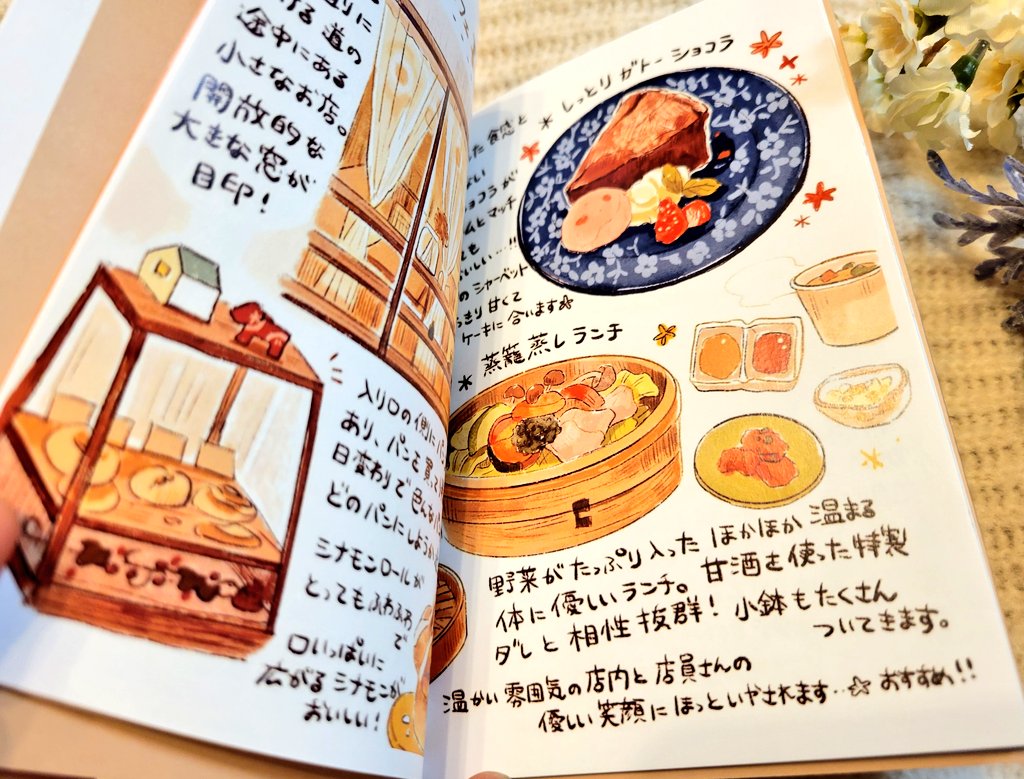 道の
途中にある
小さなお店。
開放的な
大きな窓が
目印！
入り口の側に
あり、パンを買って
日変わりで色んな
どのパンにしようか
シナモンロールが
とってもふわふわ
で
口いっぱいに
広がるシナモンが
おいしい！
しっとり ガトーショコラ
食感と
ショコラが
とマッチ
の シャーベット
甘くて
ケーキに合います
蒸籠蒸しランチ
野菜がたっぷり入った ほかほか 温まる
体に優しいランチ。甘酒を使った特製
ダレと相性抜群！小鉢もたくさん
ついてきます。
温かい雰囲気の店内と店員さんの
優しい笑顔にほっといやされます…☆おすすめ!!